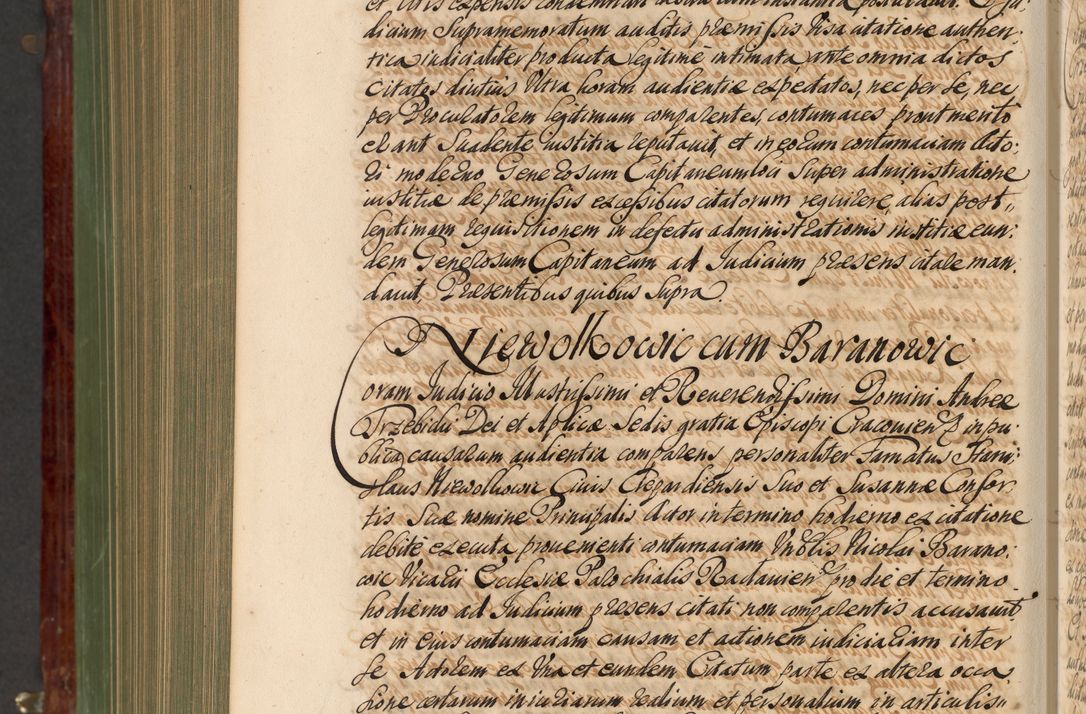 et litis expensis condemnari
dicium Supramemoratum auditis præmissis Visa citatione authen:
tica iudicialiter producta legitime intimata ante omnia dictos
Citatos diutius Vltra horam audientiæ expectatos, nec per se, nec
per Procuratorem legitimum comparentes, contumaces prout merito
erant Suadente iustitia reputauit, et in eorum contumaciam Acto:
ri moderno Generosum Capitaneum loci Super administratione
iustitiæ de præmissis excessibus citatorum requirere, alias post
legitimam requisitionem in defectu administrationis iustitiæ eun:
dem Generosum Capitaneum ad Judicium præsens citare man:
dauit, Præsentibus quibus Supra.
Niewolkowic cum Baranowic
Coram Judicio Illustrissimi et Reuerendissimi Domini Andreæ
Trzebicki Dei et Aplicæ Sedis gratia Episcopi Cracouien in pu:
blica causarum audientia comparens personaliter Famatus Stani:
slaus Niewolkowic Ciuis Suo et Susannæ Consor:
tis Suæ nomine Principalis Actor in termino hodierno ex citatione
debite executa proueniente contumaciam Vnblis Nicolai Barano:
wic Vicarii Ecclesiæ Parochialis pro die et termino
hodierno ad Judicium præsens citati non comparentis accusauit
et in eius contumaciam causam et actionem iudiciariam inter
se Actorem ex Vna et eundem Citatum parte ex altera occa:
sione certarum iniuriarum realium et personalium in articulis